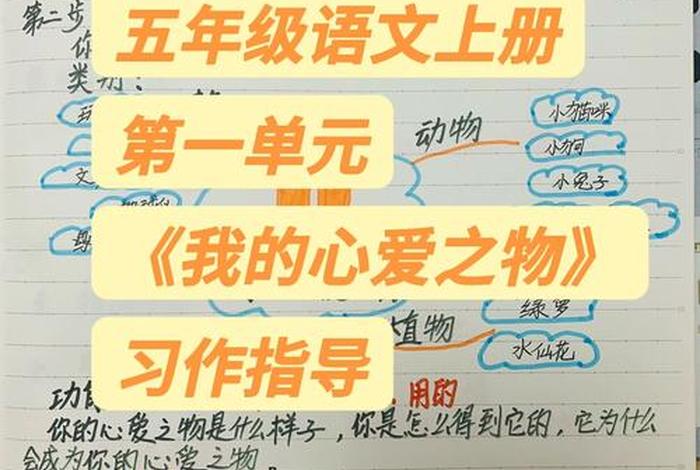 第二步
五年级语文上册
你
类别：
动物
小猫咪
第一单元
小狗
文
小兔子
《我的心爱之物》
绿萝
植物
水仙花
习作指导
功
用的
你的心爱之物是什么样子，你是怎么得到它的，它为什么
会成为你的心爱之物。